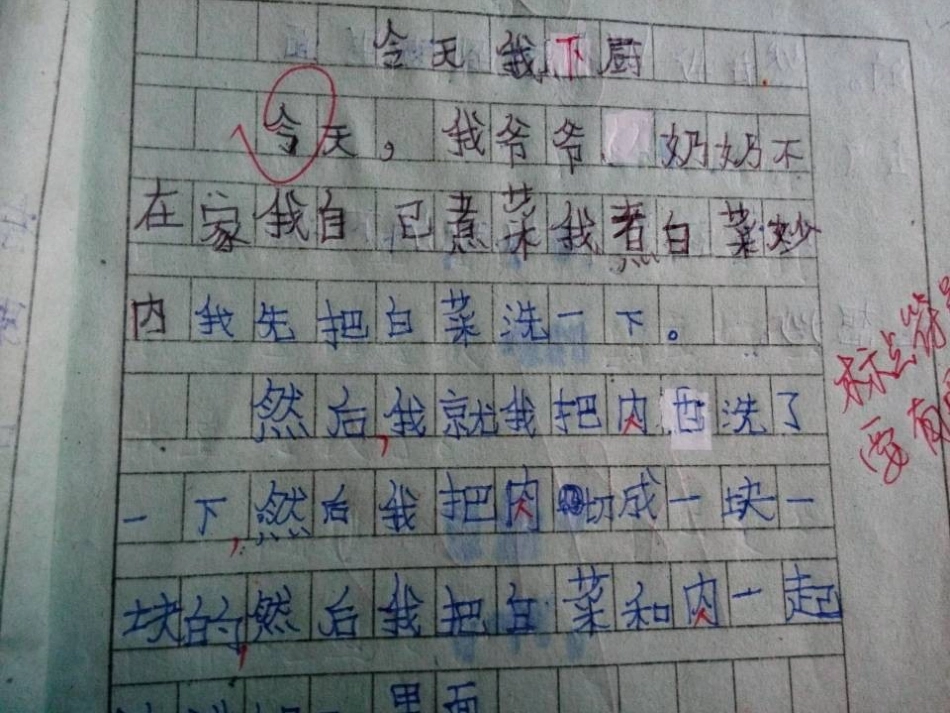 今天我下厨
今天，我爷爷奶奶不
在家我自已煮菜我煮白菜炒
内我先把白菜洗一下。
然后,我就我把肉也洗了
一下,然后我把肉切成一块一
块的,然后我把白菜和肉一起
里面
标点符号
要有